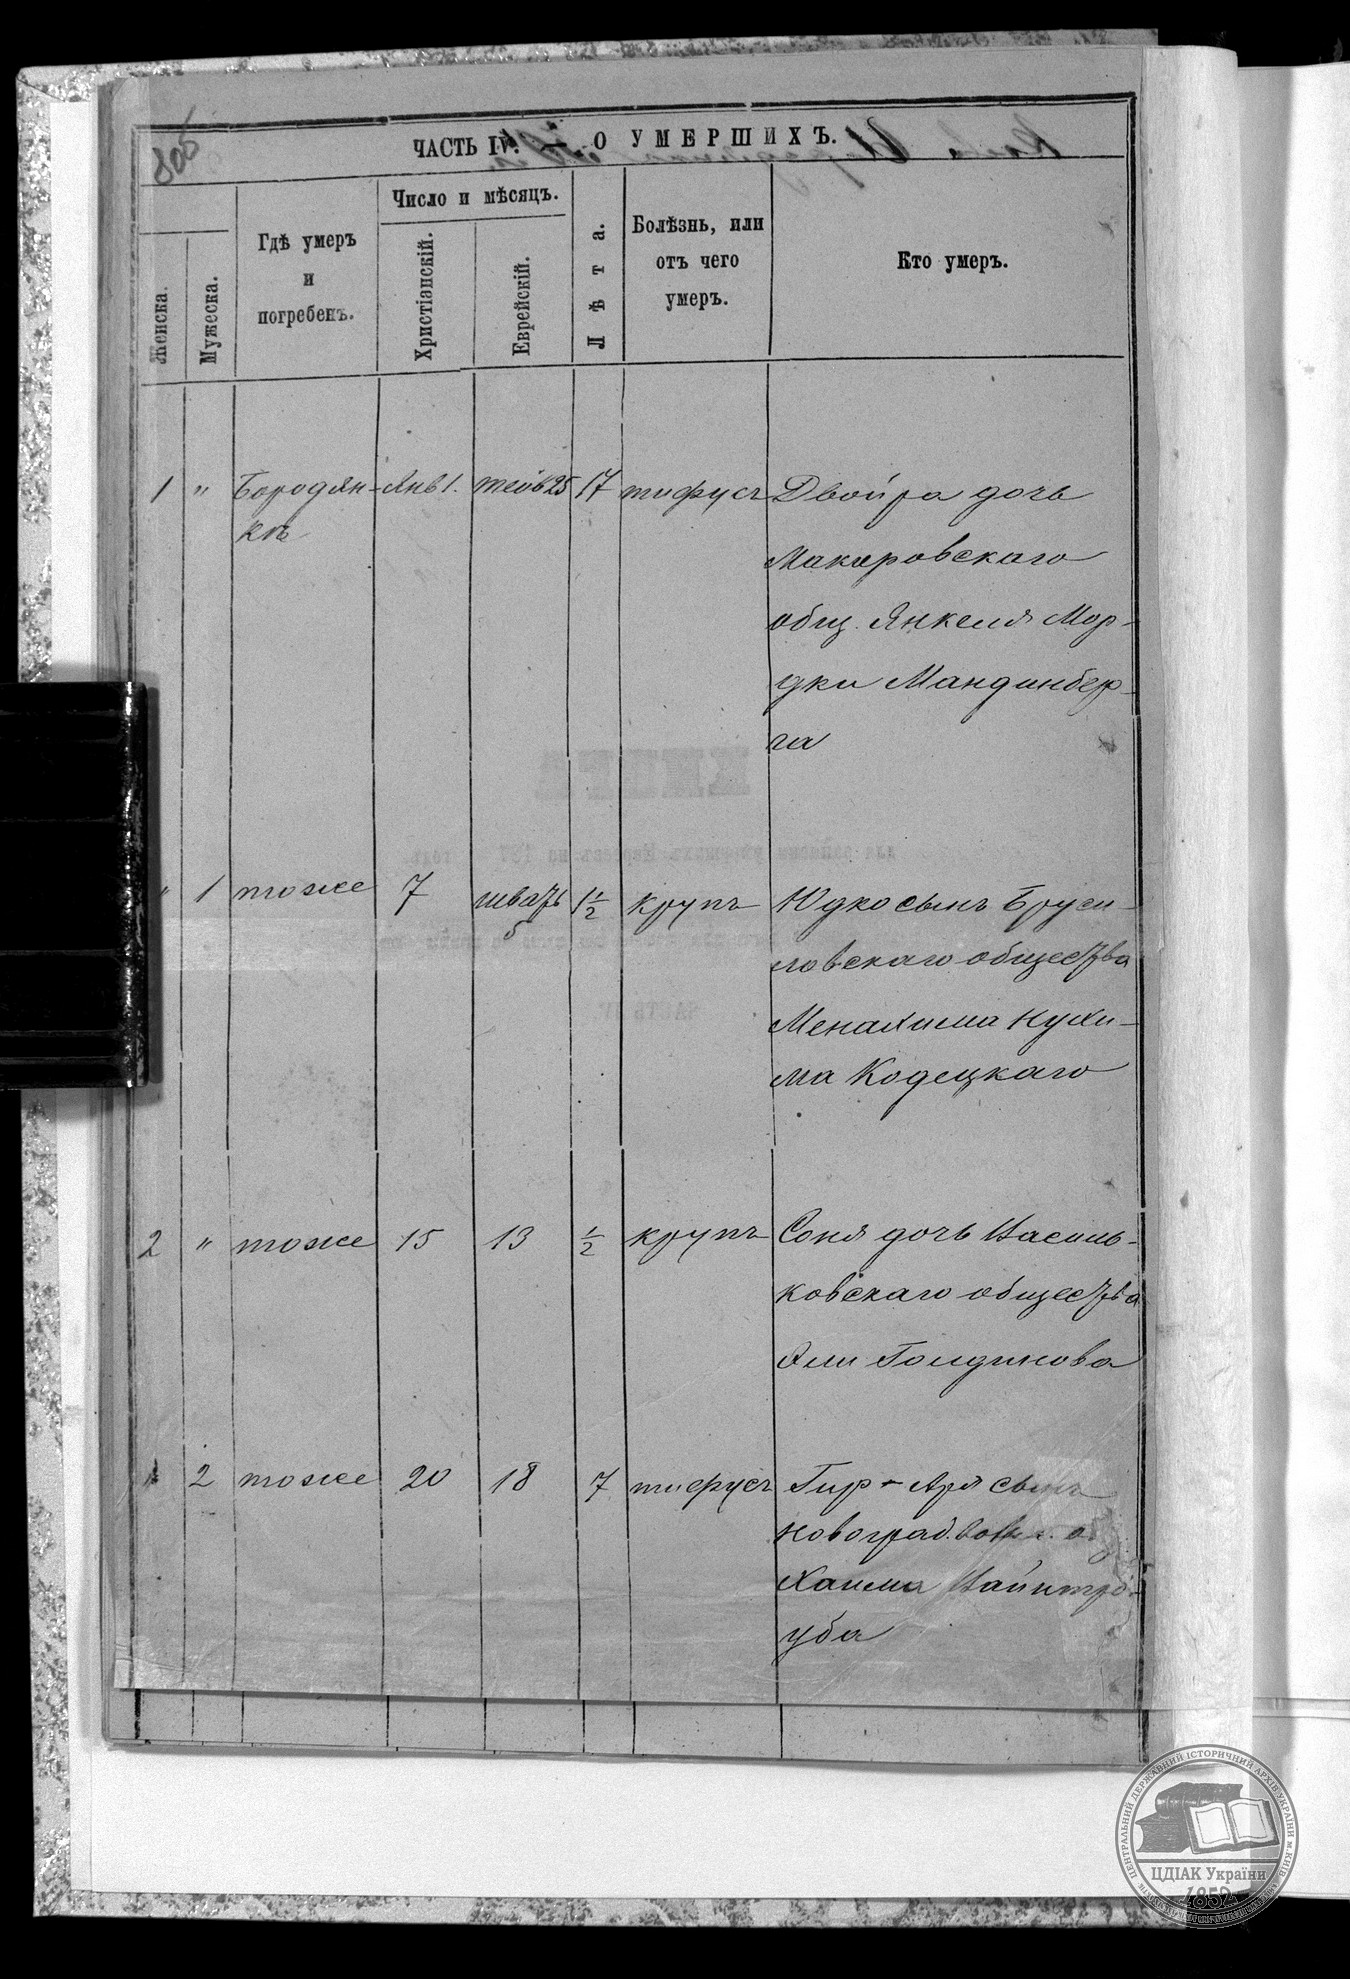 806
ЧАСТЬ IV. — О УМЕРШИХЪ.
Женска.
Мужеска.
Гдѣ умеръ
и
погребенъ.
Число и мѣсяцъ.
Христіанскій.
Еврейскій.
Лѣта.
Болѣзнь, или
отъ чего
умеръ.
Кто умеръ.
1 " Бородян- Янв 1. тейв 25 17 тифусъ Двойра дочь
кѣ
Макаровскаго
общ. Янкеля Мор-
дки Мандинбер-
га
" 1 тоже 7 шватъ 1 1/2 крупъ Юдко сынъ Бруси-
5
ловскаго общества
Менахима Нухи-
ма Кодецкаго
2 " тоже 15 13 1/2 крупъ Соня дочь Василь-
ковскаго общества
Эли Голдинова
" 2 тоже 20 18 7 тифусъ Гир-Аря сынъ
новоград.вол. о
Хаима Вайнтро-
уба
ЦЕНТРАЛЬНИЙ ДЕРЖАВНИЙ ІСТОРИЧНИЙ АРХІВ УКРАЇНИ м.КИЇВ
ЦДІАК України
1852